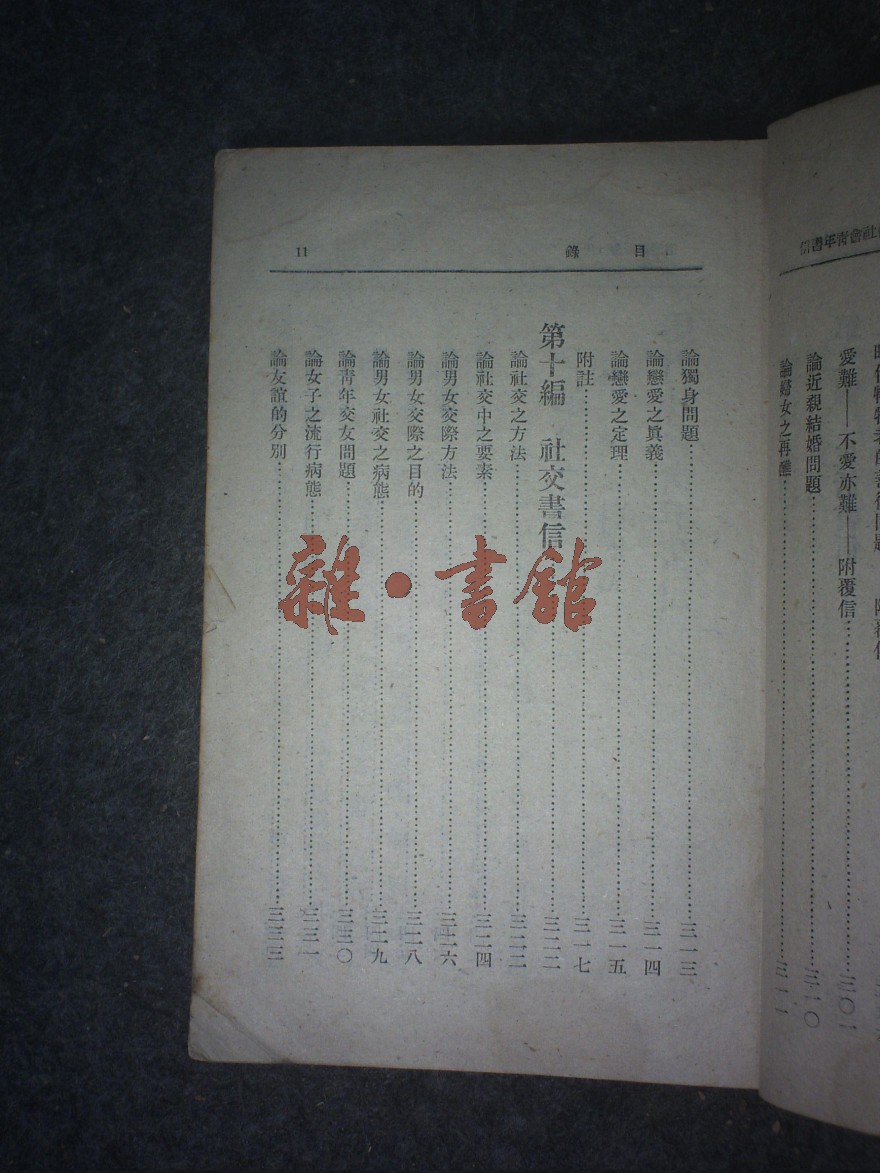 社會青年書信
愛難——不愛亦難——附覆信……三〇一
論近親結婚問題……三一〇
論婦女之再醮……三一一
目錄 11
論獨身問題……三一三
論戀愛之眞義……三一四
論戀愛之定理……三一五
附註……三一七
第十編 社交書信……三二二
論社交之方法……三二二
論社交中之要素……三二四
論男女交際方法……三二六
論男女交際之目的……三二八
論男女社交之病態……三二九
論靑年交友問題……三三〇
論女子之流行病態……三三一
論友誼的分別……三三三
雜·書館